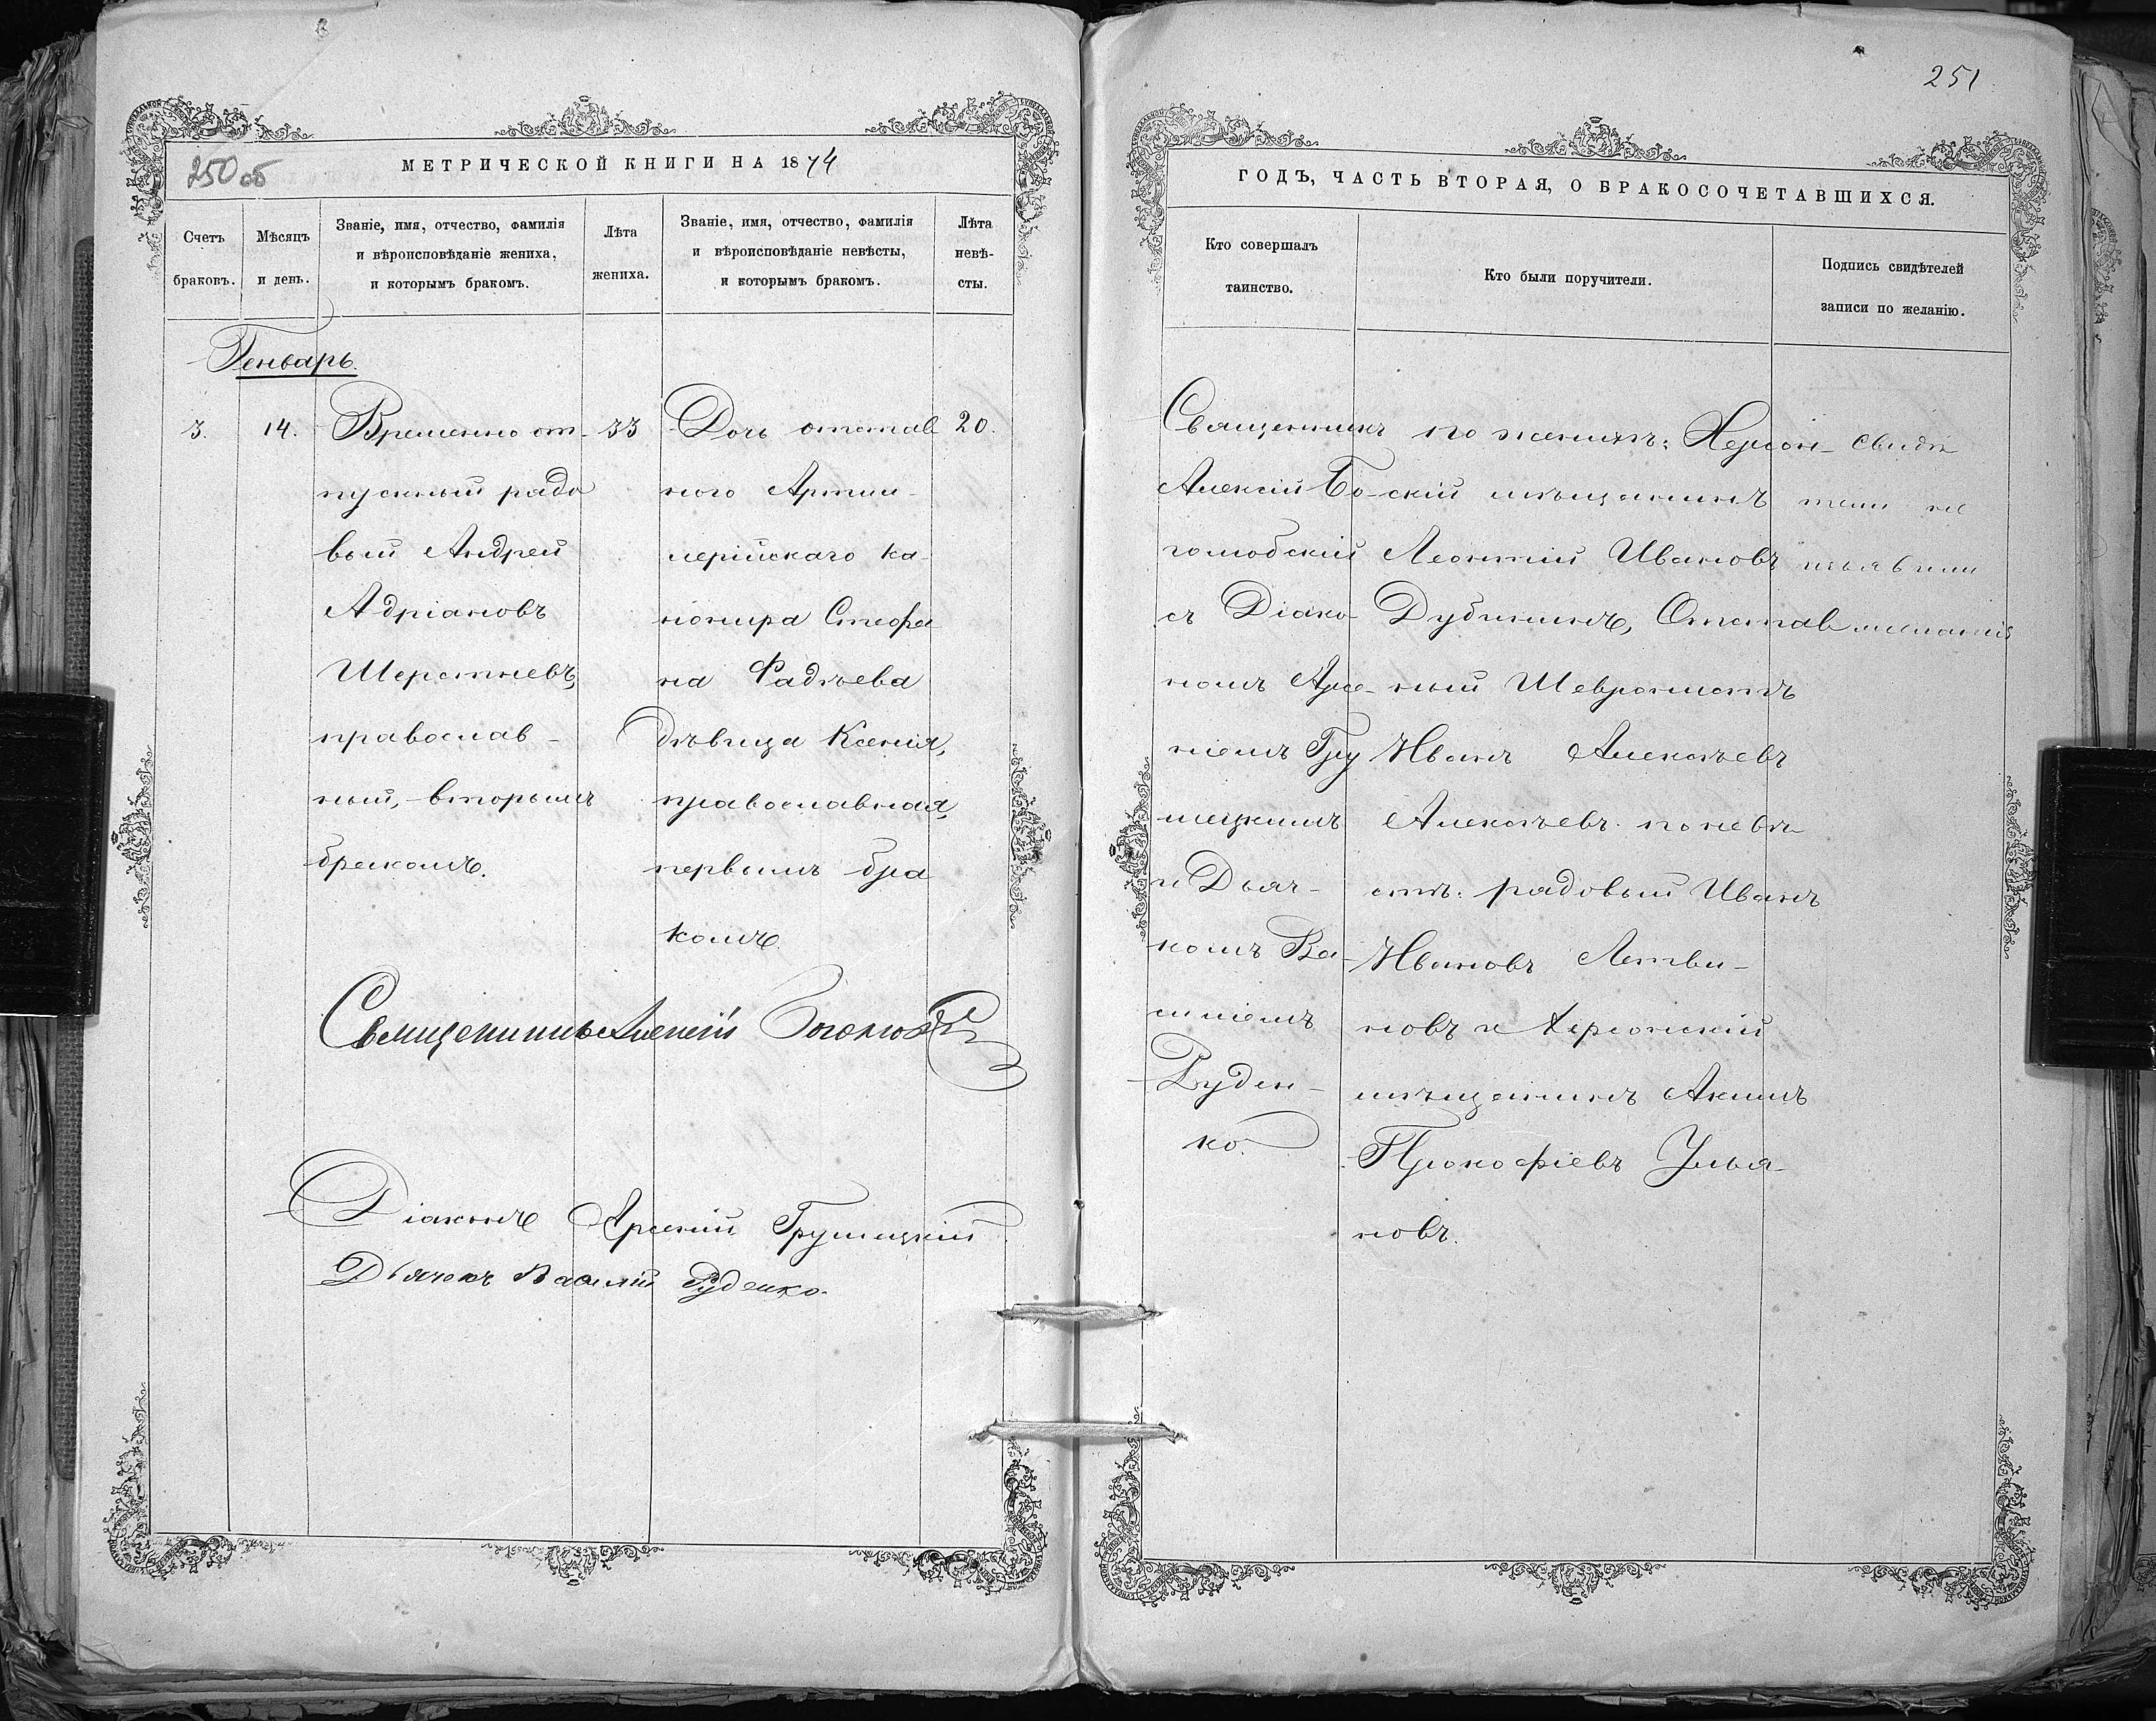 250об
МЕТРИЧЕСКОЙ КНИГИ НА 1874
Счетъ браковъ.
Мѣсяцъ и день.
Званіе, имя, отчество, фамилія
и вѣроисповѣданіе жениха,
и которымъ бракомъ.
Лѣта жениха.
Званіе, имя, отчество, фамилія
и вѣроисповѣданіе невѣсты,
и которымъ бракомъ.
Лѣта невѣ-
сты.
Генварь.
3.
14.
Временно от-
пускный рядо
вый Андрей
Адріановъ
Шерстневъ,
православ-
ный, вторымъ
бракомъ.
33
Дочь отстав
ного Артил-
лерійскаго ка-
нонира Стефа
на Фадѣева
дѣвица Ксенія,
православная,
первымъ бра
комъ.
20.
Священникъ Алексій
Діаконъ Арсеній Грушецкій
Дьячекъ Василій Руденко.
251
ГОДЪ, ЧАСТЬ ВТОРАЯ, О БРАКОСОЧЕТАВШИХСЯ.
Кто совершалъ
таинство.
Кто были поручители.
Подпись свидѣтелей
записи по желанію.
Священникъ
Алексій Бо-
голюбскій
съ Діако-
номъ Арсе-
ніемъ Гру
шецкимъ
и Дьяч-
комъ Ва-
силіемъ
Руден-
ко.
по женихѣ: Херсон-
скій мѣщанинъ
Леонтій Ивановъ
Дубининъ, Отстав
ный Шевронистъ
Иванъ Алексѣевъ
Алексѣевъ. по невѣ
стѣ: рядовый Иванъ
Ивановъ Литви-
новъ и Херсонскій
мѣщанинъ Акимъ
Прокофіевъ Улья-
новъ.
Свидѣ
тели не
изъявили
желанія